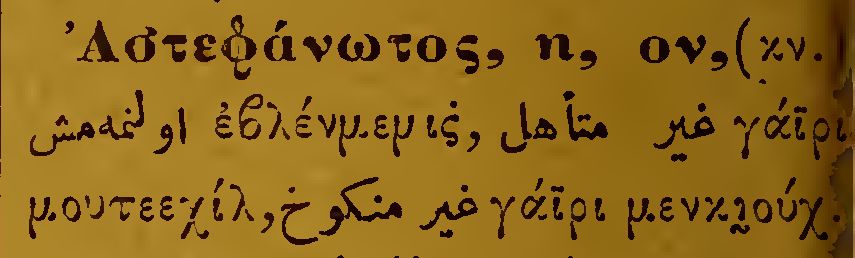 Ἀστεφάνωτος, η, ον, (κν.
اولنمه‌مش ἐβλένμεμις̇, متأهل غير γάϊρι
μουτεεχίλ, منكوح غير γάϊρι μενκιούχ.